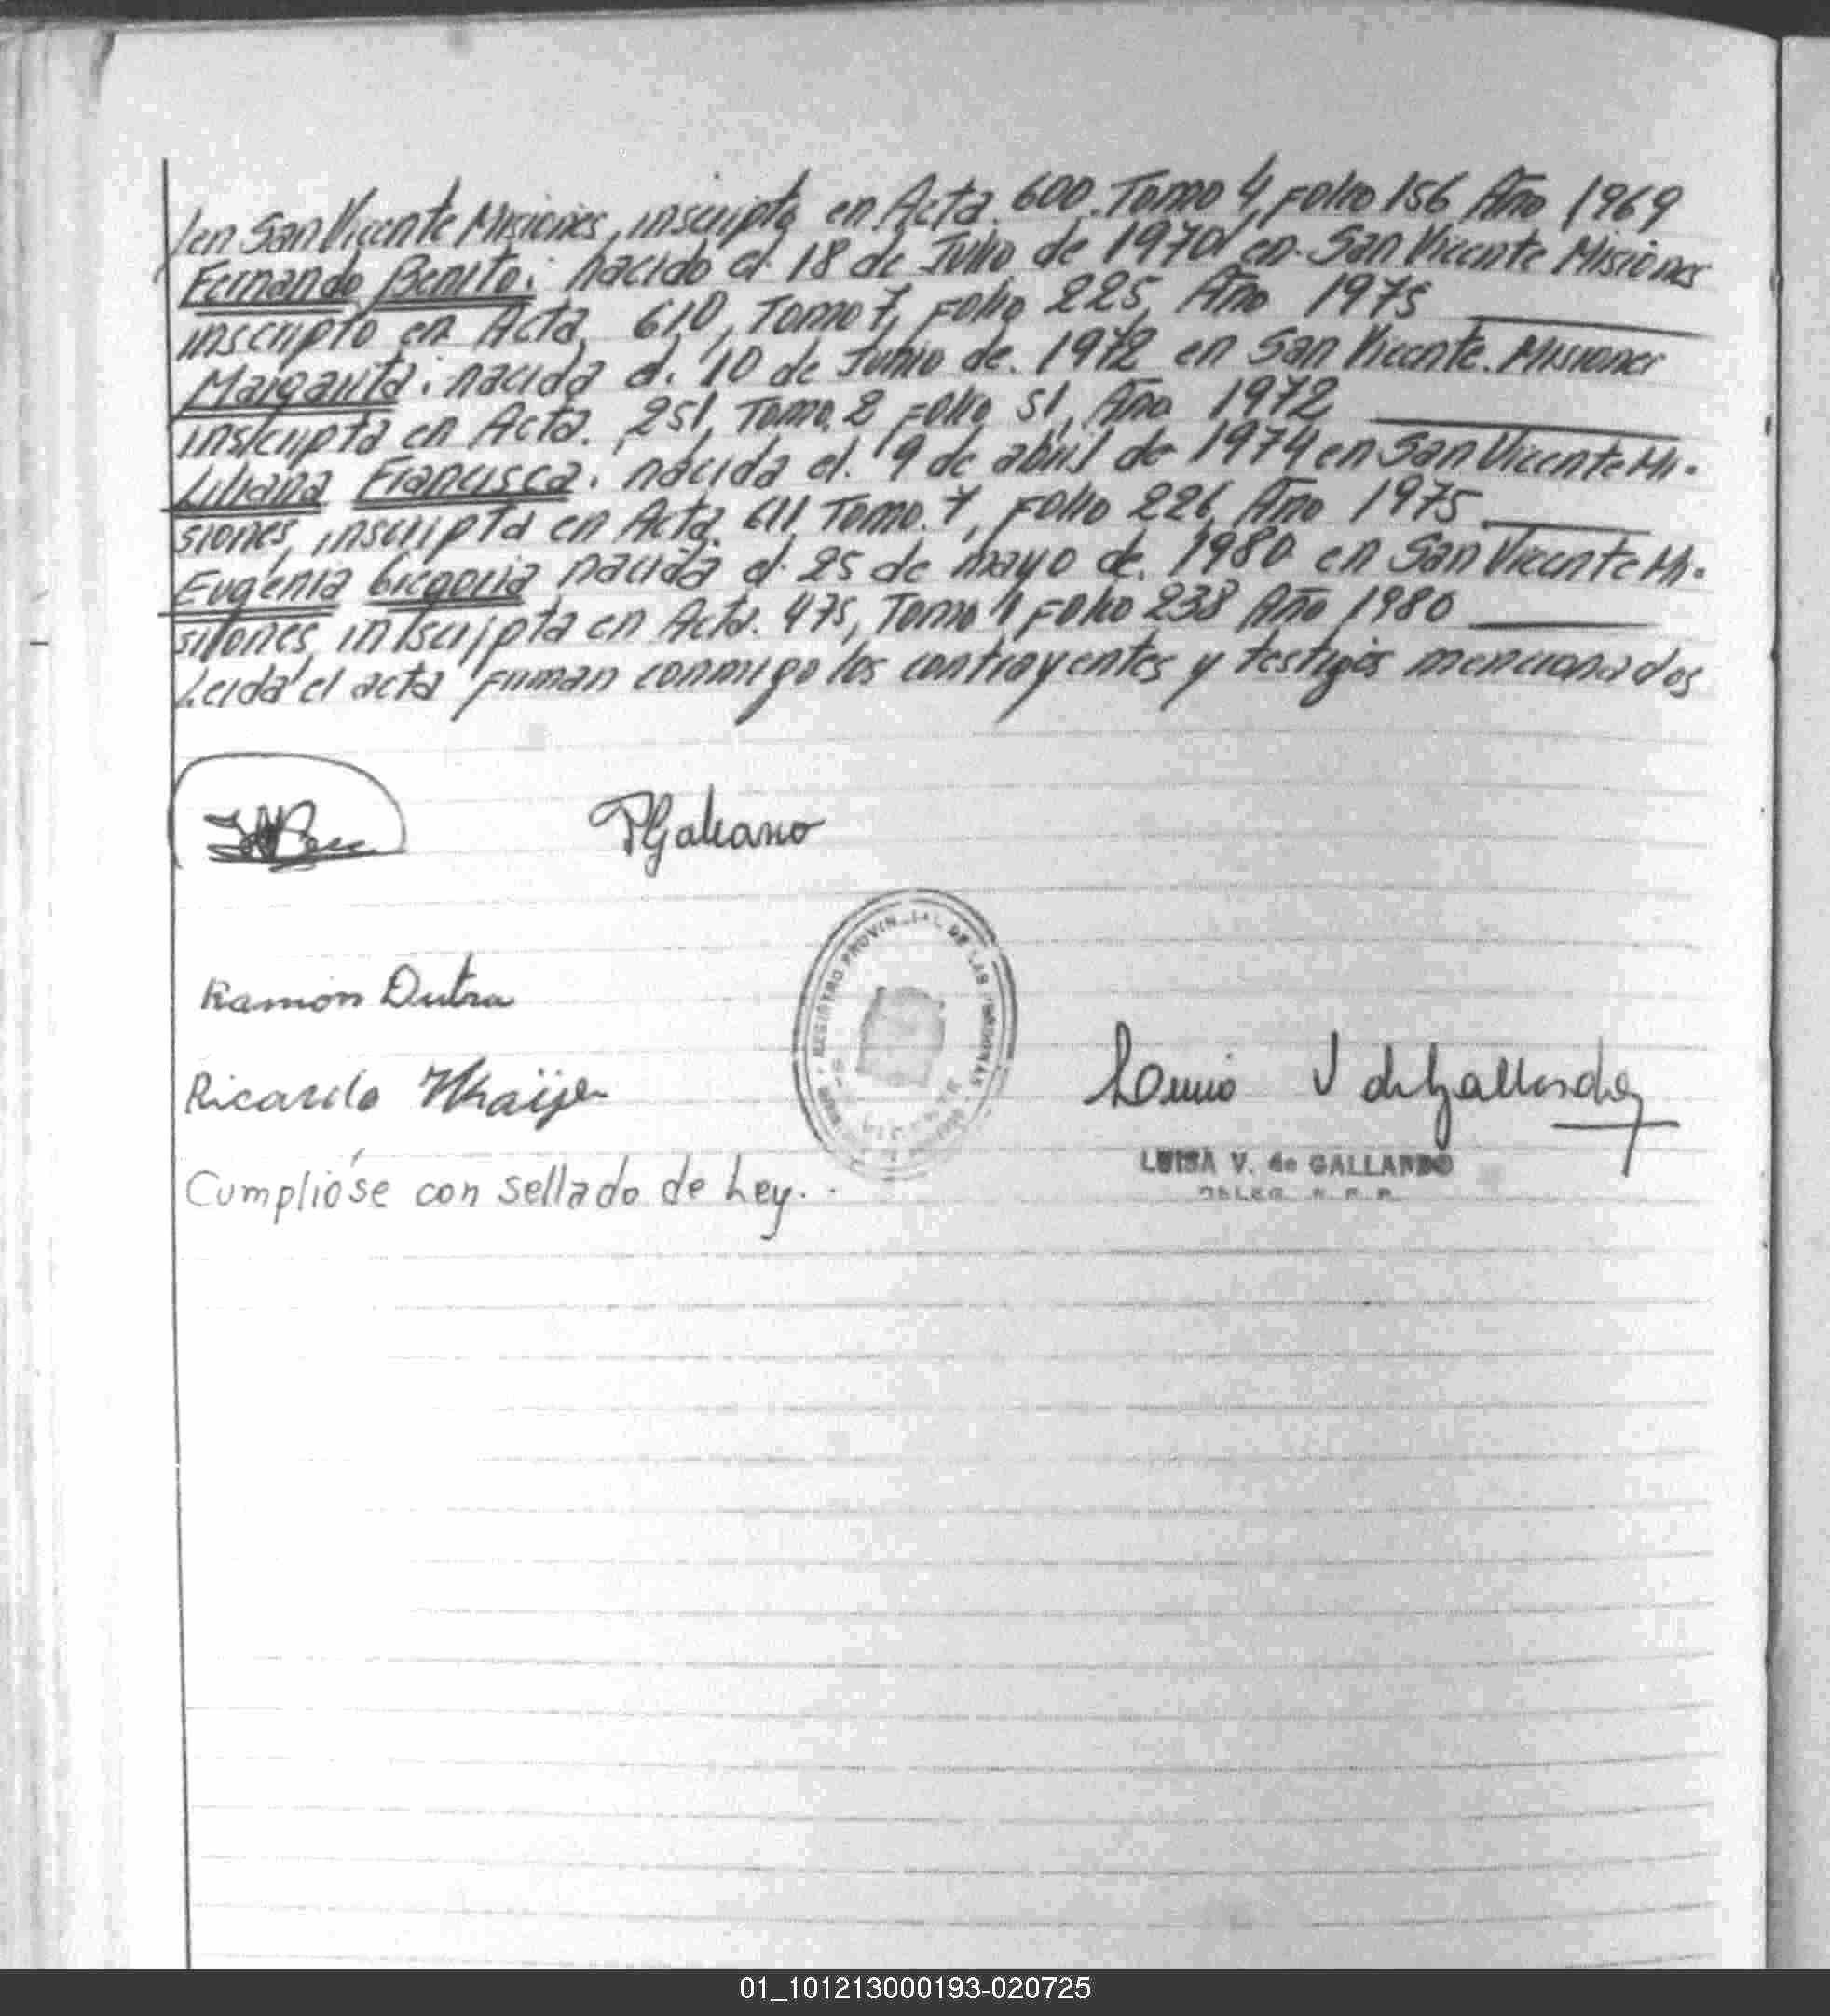 /en San Vicente Misiones, inscripta en Acta. 600. Tomo 4, Folio 156 Año 1969
Fernando Benito: nacido el 18 de Julio de 1970 en San Vicente Misiones
inscripto en Acta 610, Tomo 7, Folio 225, Año 1975
Margarita: nacida el. 10 de Junio de. 1972 en San Vicente. Misiones
inscripta en Acta. 251, Tomo. 2 Folio 51, Año 1972
Liliana Francisca. nacida el. 9 de abril de 1974 en San Vicente Mi-
siones, inscripta en Acta. 611 Tomo. 7, Folio 226, Año 1975
Eugenia Gregoria nacida el 25 de mayo de. 1980 en San Vicente Mi-
siones, inscripta en Acta. 475, Tomo 1 Folio 238 Año 1980
Leida el acta firman conmigo los contrayentes y testigos mencionados
PGaleano
REGISTRO PROVINCIAL DE LAS PERSONAS
Ramon Dutra
Ricardo
Luisa V de Gallardo
LUISA V. de GALLARDO
DELEG. R. P. P.
Cumplióse con sellado de Ley.
01_101213000193-020725